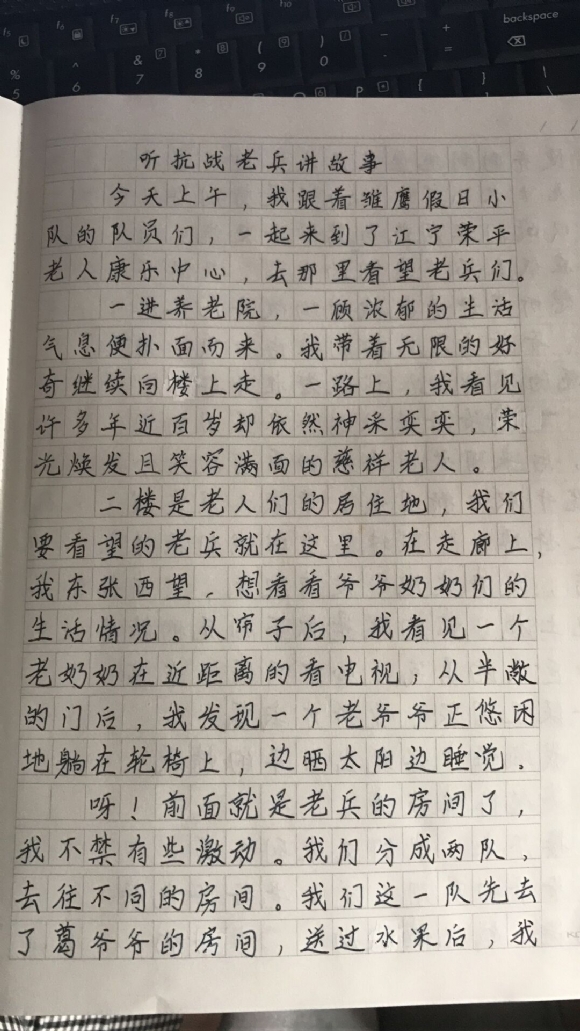 backspace
听抗战老兵讲故事
今天上午，我跟着雏鹰假日小
队的队员们，一起来到了江宁荣平
老人康乐中心，去那里看望老兵们。
一进养老院，一顾浓郁的生活
气息便扑面而来。我带着无限的好
奇继续向楼上走。一路上，我看见
许多年近百岁却依然神采奕奕，荣
光焕发且笑容满面的慈祥老人。
二楼是老人们的居住地，我们
要看望的老兵就在这里。在走廊上，
我东张西望，想看看爷爷奶奶们的
生活情况。从帘子后，我看见一个
老奶奶在近距离的看电视；从半敞
的门后，我发现一个老爷爷正悠闲
地躺在轮椅上，边晒太阳边睡觉。
呀！前面就是老兵的房间了，
我不禁有些激动。我们分成两队，
去往不同的房间。我们这一队先去
了葛爷爷的房间，送过水果后，我